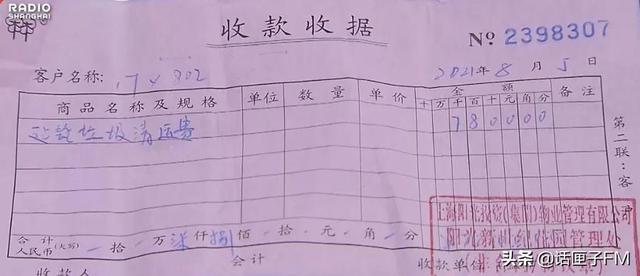 RADIO
SHANGHAI
收款收据
№ 2398307
客户名称:
2021年8月5日
商品名称及规格 单位 数量 单价 金额 备注
十万千百十元角分
建筑垃圾清运费 780000
第二联:客
合计
人民币(大写) 拾 万 柒仟 捌佰 拾 元 角 分
上海阳光投资(集团)物业管理有限公司
管理处
收款人 会计 收款单位
头条 @话匣子FM